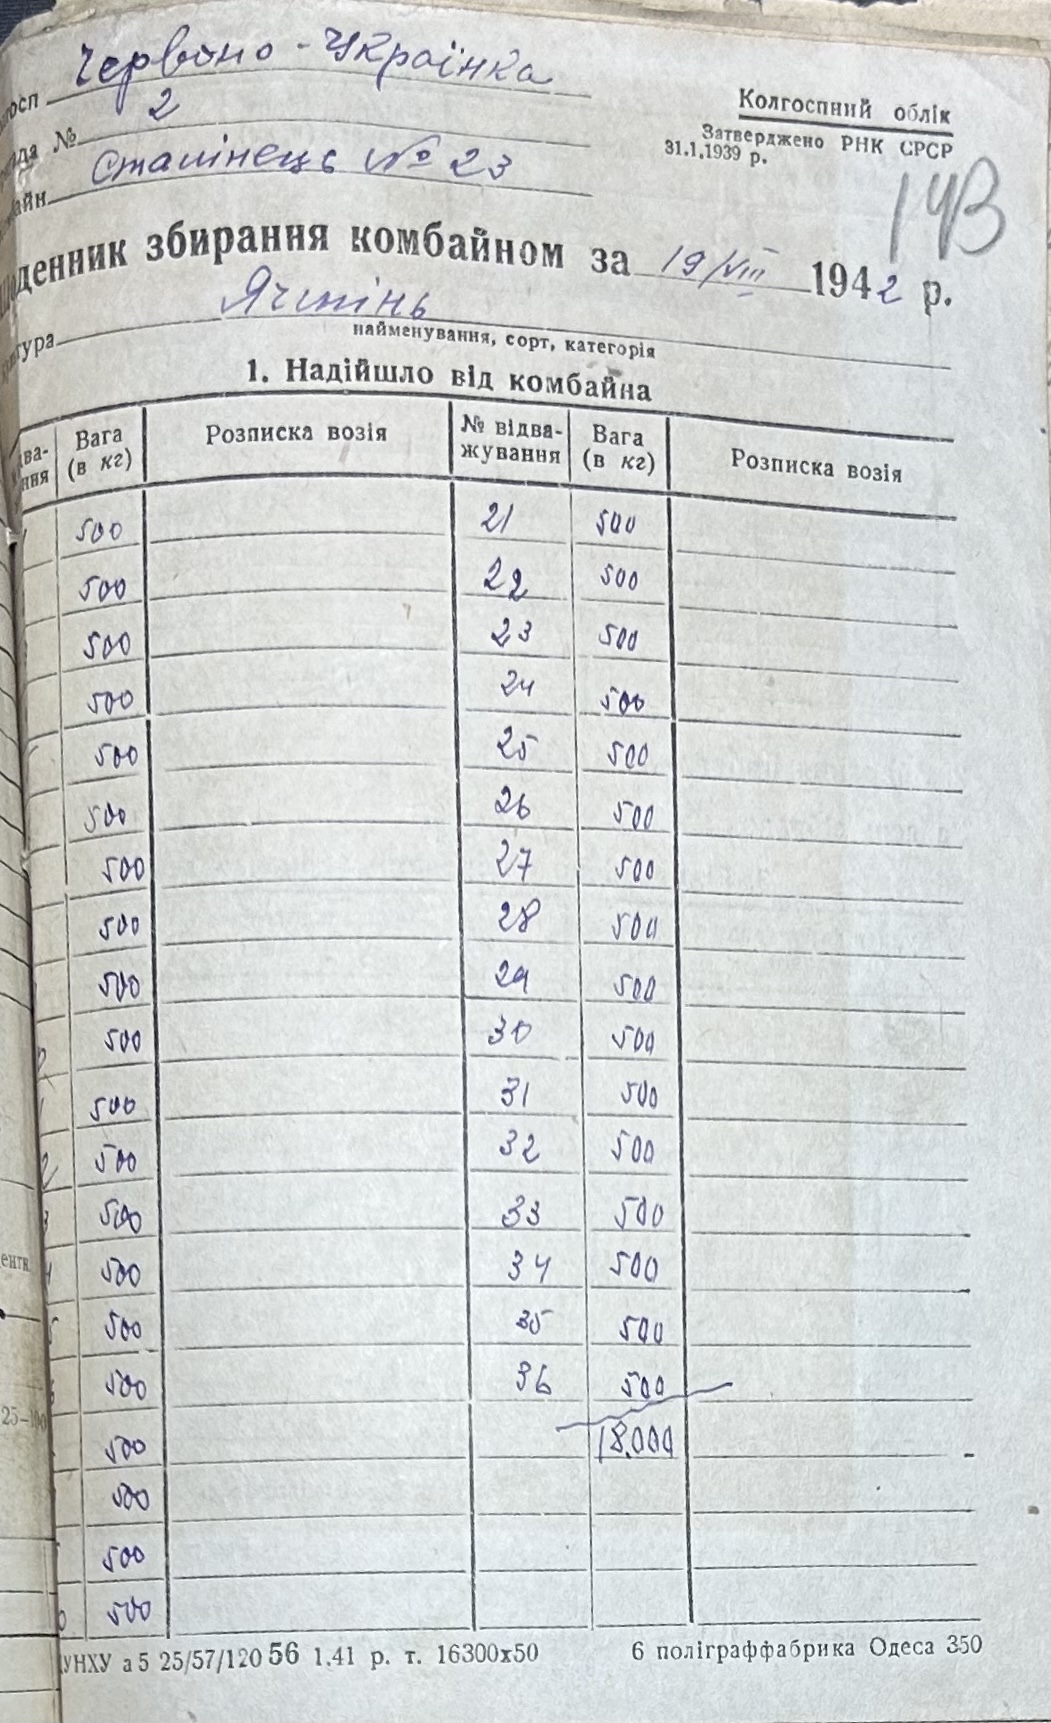 Червоно-Українка
№ 2
Сталінець № 23
Колгоспний облік
Затверджено РНК СРСР
31.1.1939 р.
143
оденник збирання комбайном за 19/VIII 1942 р.
тура Ячмінь
найменування, сорт, категорія
1. Надійшло від комбайна
Вага (в кг) Розписка возія № відва-жування Вага (в кг) Розписка возія
500 21 500
500 22 500
500 23 500
500 24 500
500 25 500
500 26 500
500 27 500
500 28 500
500 29 500
500 30 500
500 31 500
2 500 32 500
3 500 33 500
4 500 34 500
5 500 35 500
500 36 500
500 18.000
500
500
500
УНХУ а5 25/57/120 56 1.41 р. т. 16300х50 6 поліграффабрика Одеса 350